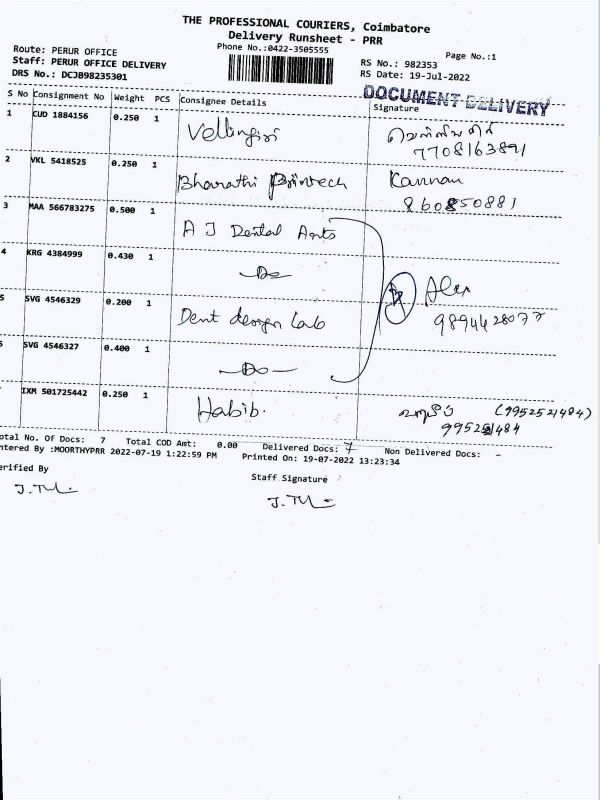 THE PROFESSIONAL COURIERS, Coimbatore
Delivery Runsheet - PRR
Phone No.:0422-3505555
Page No.:1
Route: PERUR OFFICE
Staff: PERUR OFFICE DELIVERY
DRS No.: DCJB98235301
RS No.: 982353
RS Date: 19-Jul-2022
DOCUMENT DELIVERY
S No Consignment No Weight PCS Consignee Details Signature
1 CUD 1884156 0.250 1 Vellingiri
7708163891
2 VKL 5418525 0.250 1 Bharathi Printech Kannan
860850881
3 MAA 566783275 0.500 1 A J Dental Arts
4 KRG 4384999 0.430 1 -Do- Alex
5 SVG 4546329 0.200 1 Dent design Lab 9894428077
SVG 4546327 0.400 1 -Do-
IXM 501725442 0.250 1 Habib. (9952521484)
otal No. Of Docs: 7 Total COD Amt: 0.00 Delivered Docs: 7 Non Delivered Docs: -
ntered By :MOORTHYPRR 2022-07-19 1:22:59 PM Printed On: 19-07-2022 13:23:34
erified By Staff Signature